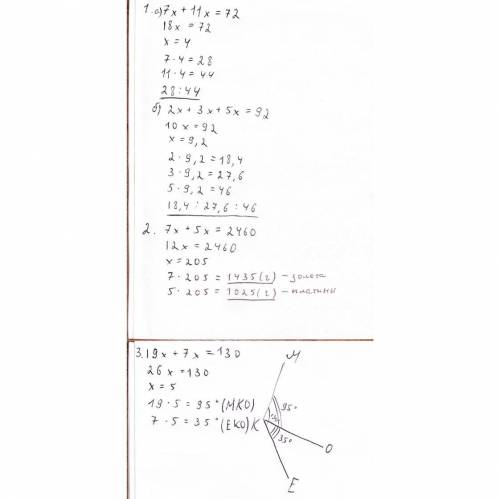 1. а) 7x + 11x = 72
18x = 72
x = 4
7 · 4 = 28
11 · 4 = 44
28 : 44
б) 2x + 3x + 5x = 92
10x = 92
x = 9,2
2 · 9,2 = 18,4
3 · 9,2 = 27,6
5 · 9,2 = 46
18,4 : 27,6 : 46
2. 7x + 5x = 2460
12x = 2460
x = 205
7 · 205 = 1435 (г) – золота
5 · 205 = 1025 (г) – платины
3. 19x + 7x = 130
26x = 130
x = 5
19 · 5 = 95° (МКО)
7 · 5 = 35° (ЕКО)
M
95°
K
35°
O
E